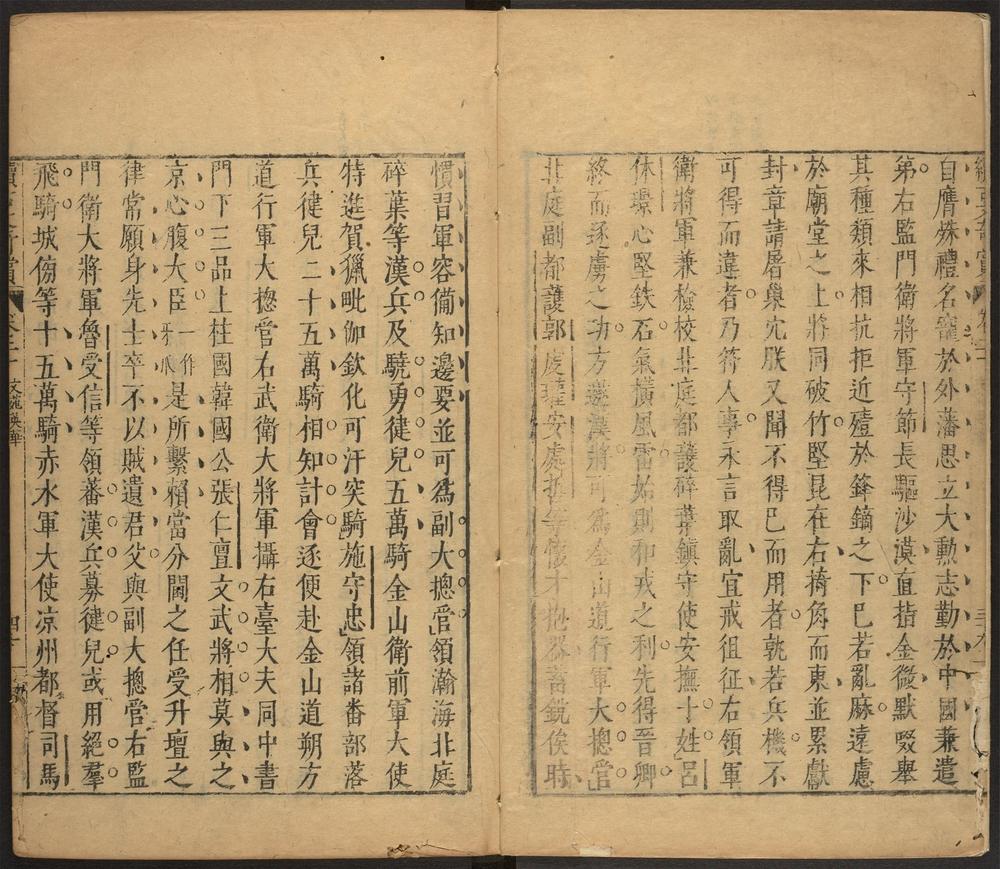 自膺殊禮名寵於外藩思立大勳志勤於中國兼遣
弟右監門衛將軍守節長驅沙漠直指金微默啜舉
其種類來相抗拒近殪於鋒鏑之下巳若亂麻遠慮
於廟堂之上將同破竹堅昆在右掎角而東並累獻
封章請屠巢穴朕又聞不得巳而用者孰若兵機不
可得而違者乃符人事永言取亂宜戒徂征右領軍
衛將軍兼檢校北庭都護碎葉鎮守使安撫十姓呂
休璟心堅鉄石氣横風雷始則和戎之利先得晉卿
終而逐虜之功方邀漢將可爲金山道行軍大摠官
北庭副都護郭虔瓘安處哲等懷才抱器蓄銳俟時
慣習軍容備知邊要並可爲副大摠官領瀚海北庭
碎葉等漢兵及驍勇徤兒五萬騎金山衛前軍大使
特進賀獵毗伽欽化可汗突騎施守忠領諸番部落
兵徤兒二十五萬騎相知計會逐便赴金山道朔方
道行軍大摠官右武衛大將軍攝右臺大夫同中書
門下三品上柱國韓國公張仁亶文武將相莫與之
京心腹大臣一作牙爪是所繫賴當分閫之任受升壇之
律常願身先士卒不以賊遺君父與副大摠官右監
門衛大將軍魯受信等領蕃漢兵募徤兒或用絕羣
飛騎城傍等十五萬騎赤水軍大使凉州都督司馬
文苑英華
四十